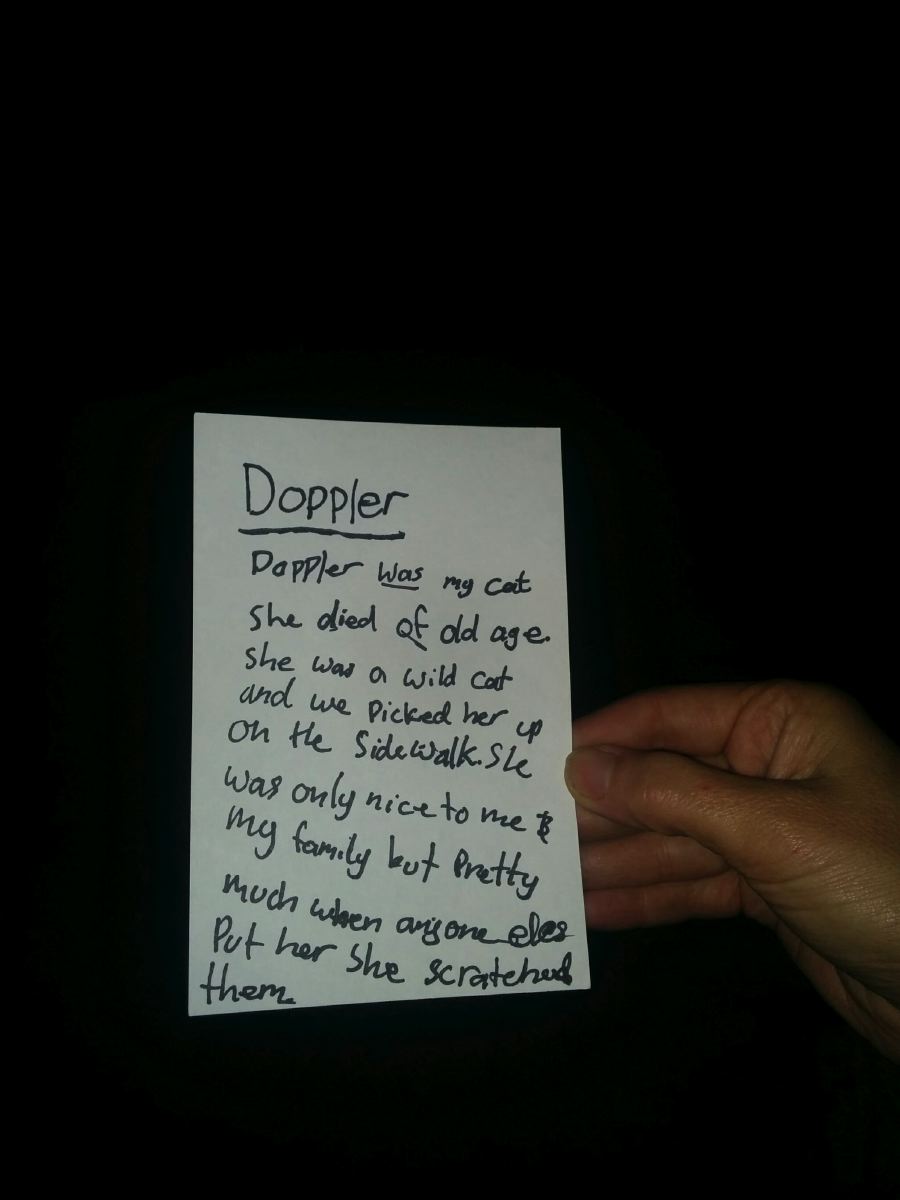 Doppler
Doppler was my cat
She died of old age.
She was a wild cat
and we Picked her up
on the Sidewalk. She
was only nice to me &
my family but Pretty
much when anyone eles
Put her she scratched
them.